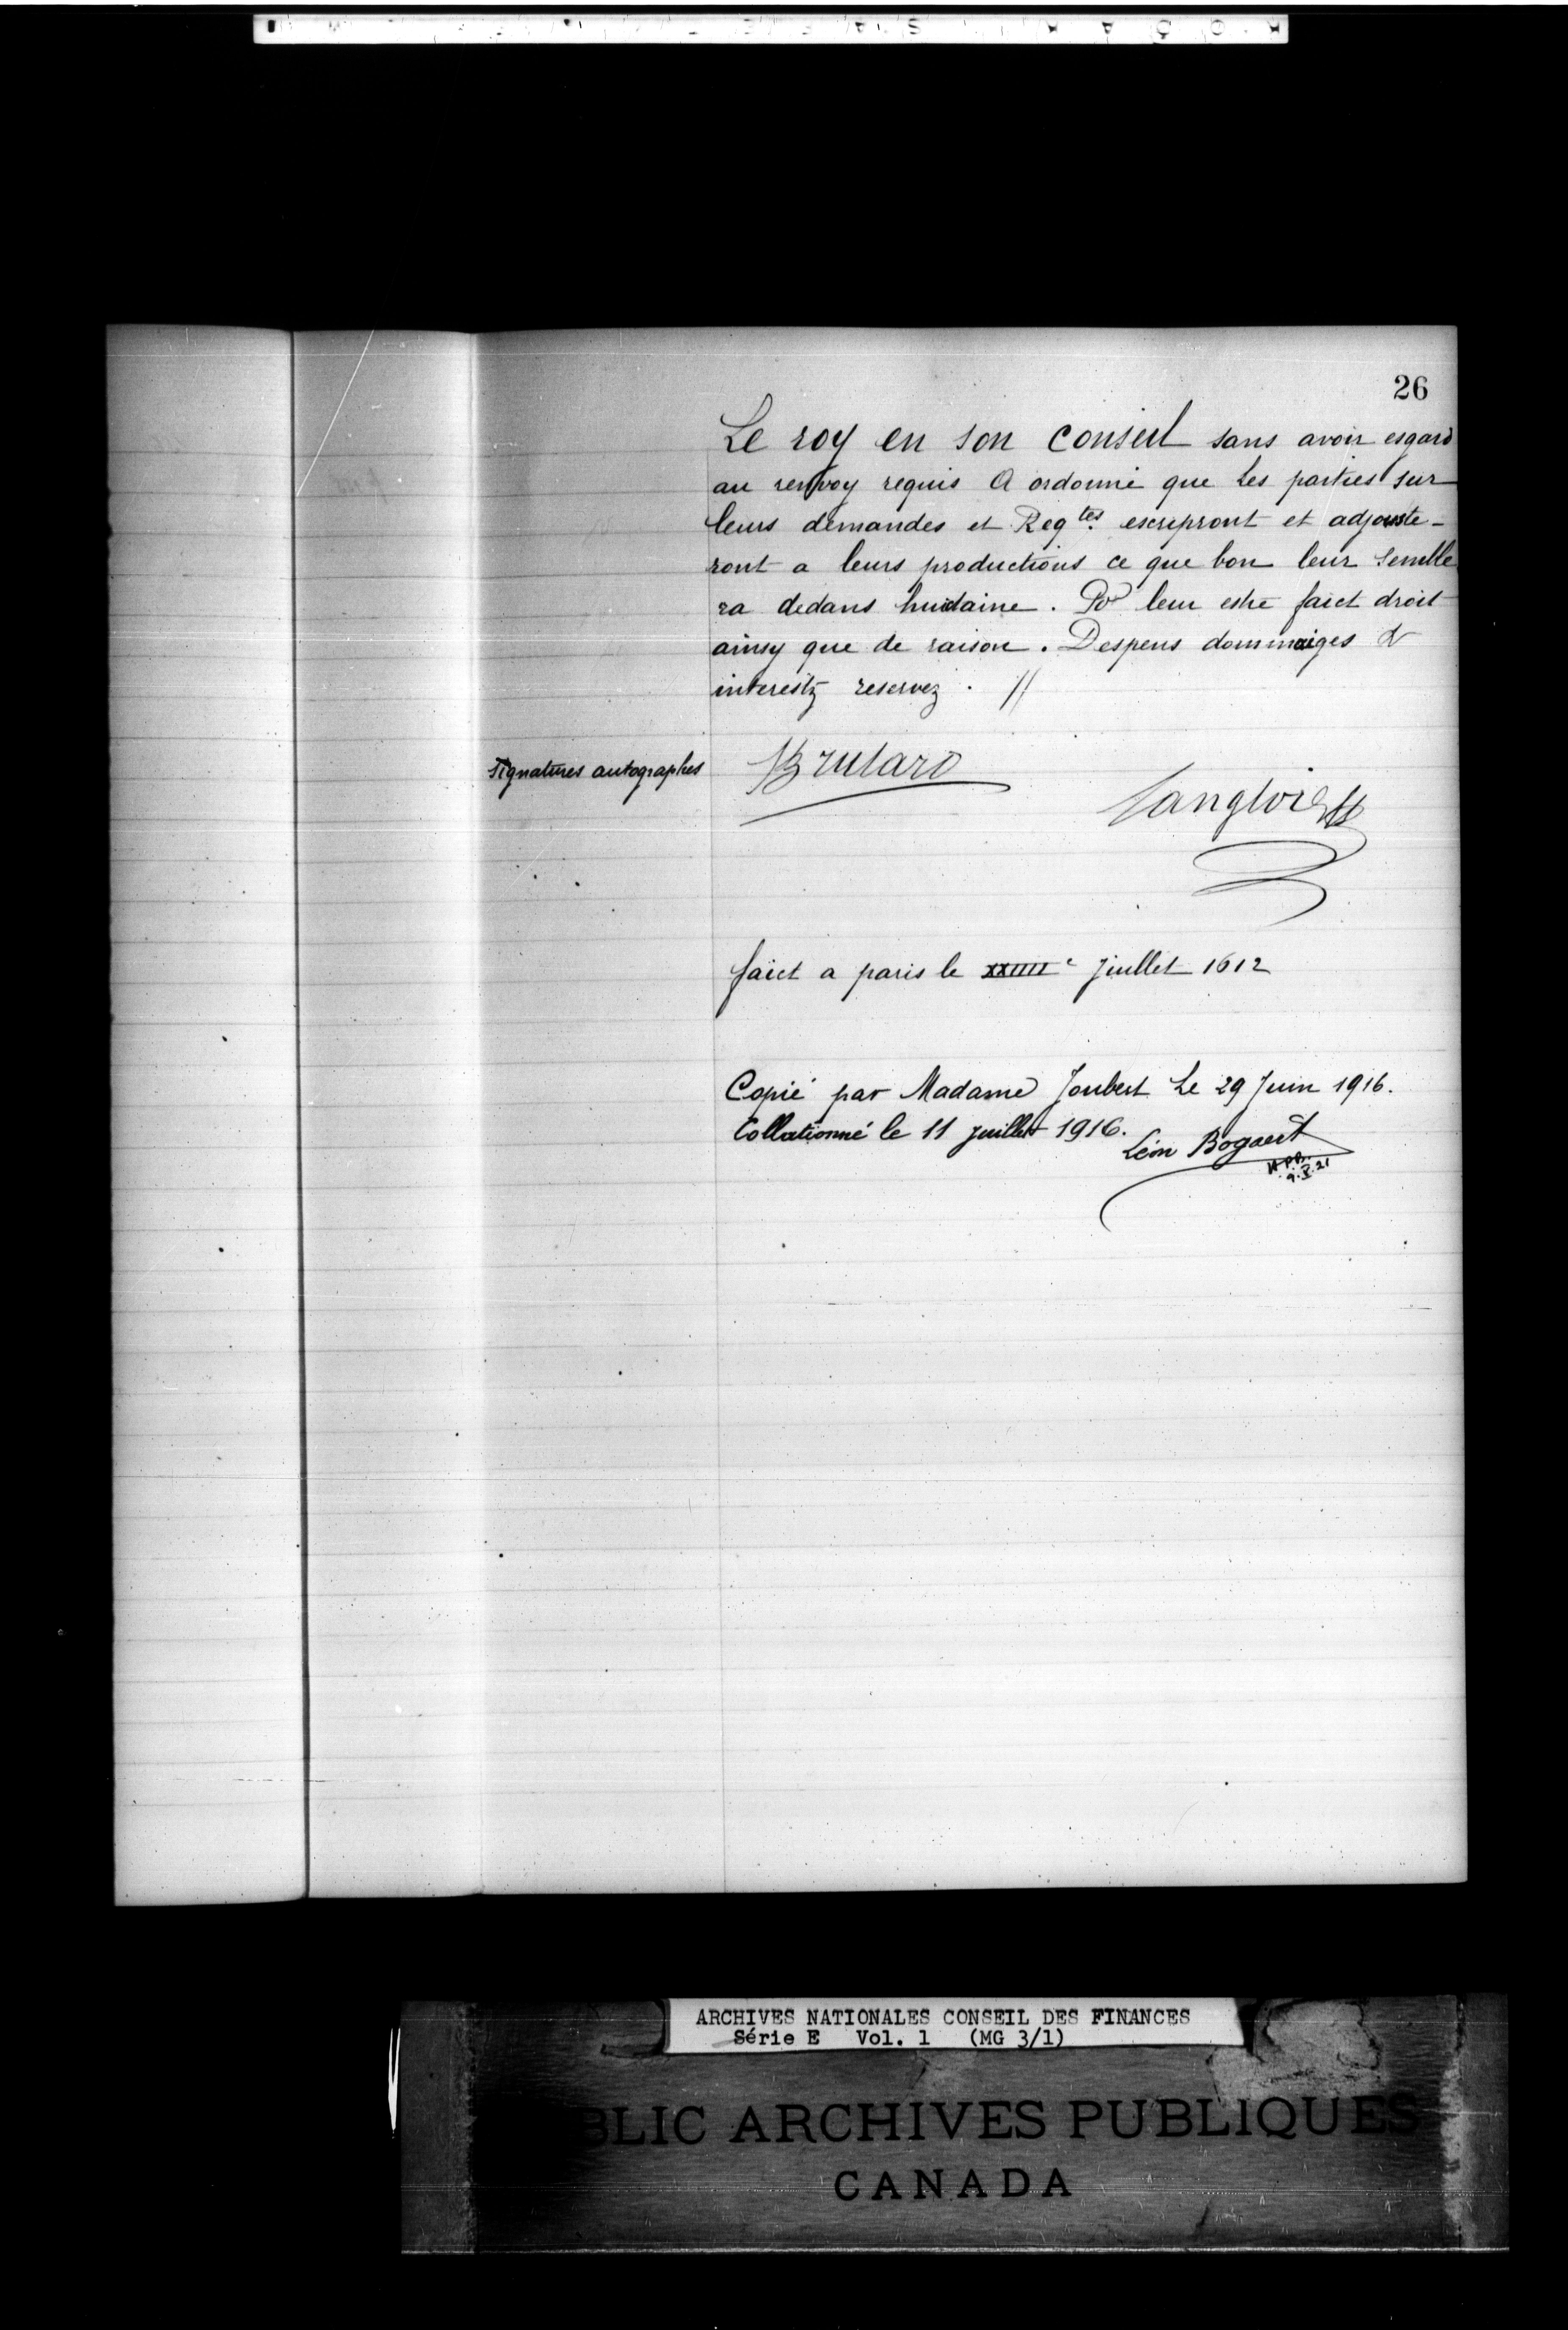 26
Le roy en son conseil sans avoir esgard
au renvoy requis A ordonné que les parties sur
leurs demandes et Reqtes escripront et adjouste-
ront a leurs productions ce que bon leur semble
ra dedans huidaine. Pr leur estre faict droit
ainsy que de raison. Despens dommaiges &
interestz reservez. //
Signatures autographes
Brulard
Langlois
faict a paris le xxiiiie Juillet 1612
Copié par Madame Joubert Le 29 Juin 1916.
Collationné le 11 juillet 1916.
Léon Bogaert
9.X.21
ARCHIVES NATIONALES CONSEIL DES FINANCES
Série E Vol. 1 (MG 3/1)
BLIC ARCHIVES PUBLIQUES
CANADA